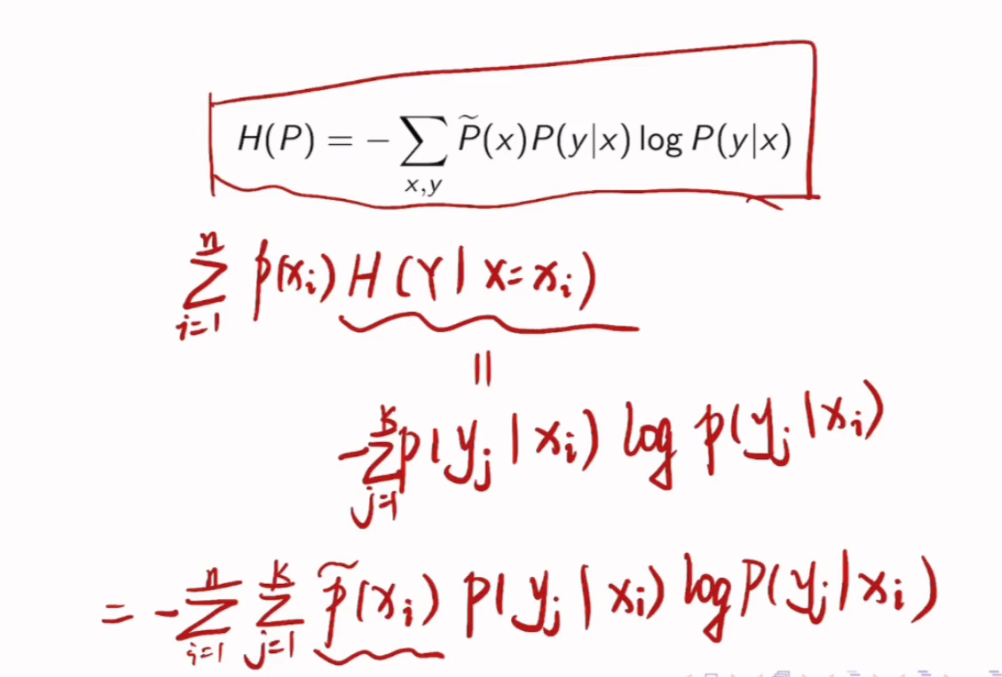 H(P) = − ∑_{x,y} P̃(x)P(y|x) log P(y|x)
∑_{i=1}^{n} p(x_i) H(Y | X=x_i)
||
-∑_{j=1}^{K} p(y_j | x_i) log p(y_j | x_i)
= -∑_{i=1}^{n} ∑_{j=1}^{K} p̃(x_i) p(y_j | x_i) log P(y_j | x_i)